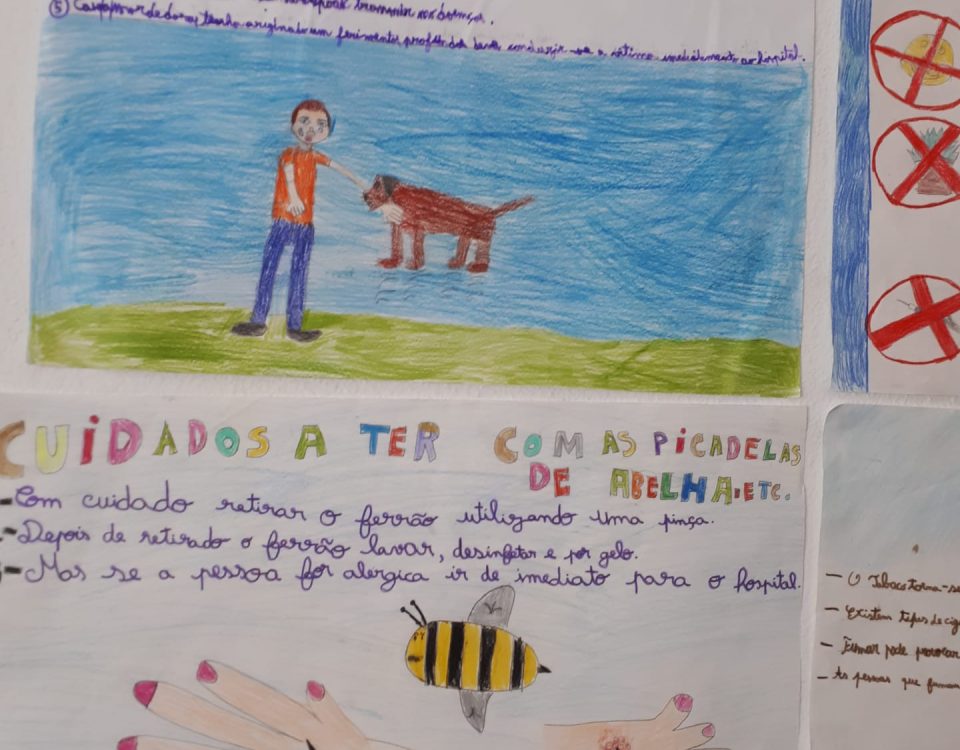 ⑤ Caso a mordedora tenha originado um ferimento profundo deve conduzir-se a vítima imediatamente ao hospital.
CUIDADOS A TER COM AS PICADELAS
DE ABELHA.ETC.
-Com cuidado retirar o ferrão utilizando uma pinça.
-Depois de retirado o ferrão lavar, desinfetar e pôr gelo.
-Mas se a pessoa for alérgica ir de imediato para o hospital.
- O Tabaco torna-se
- Existem tipos de cig
- Fumar pode provocar
- As pessoas que fumam